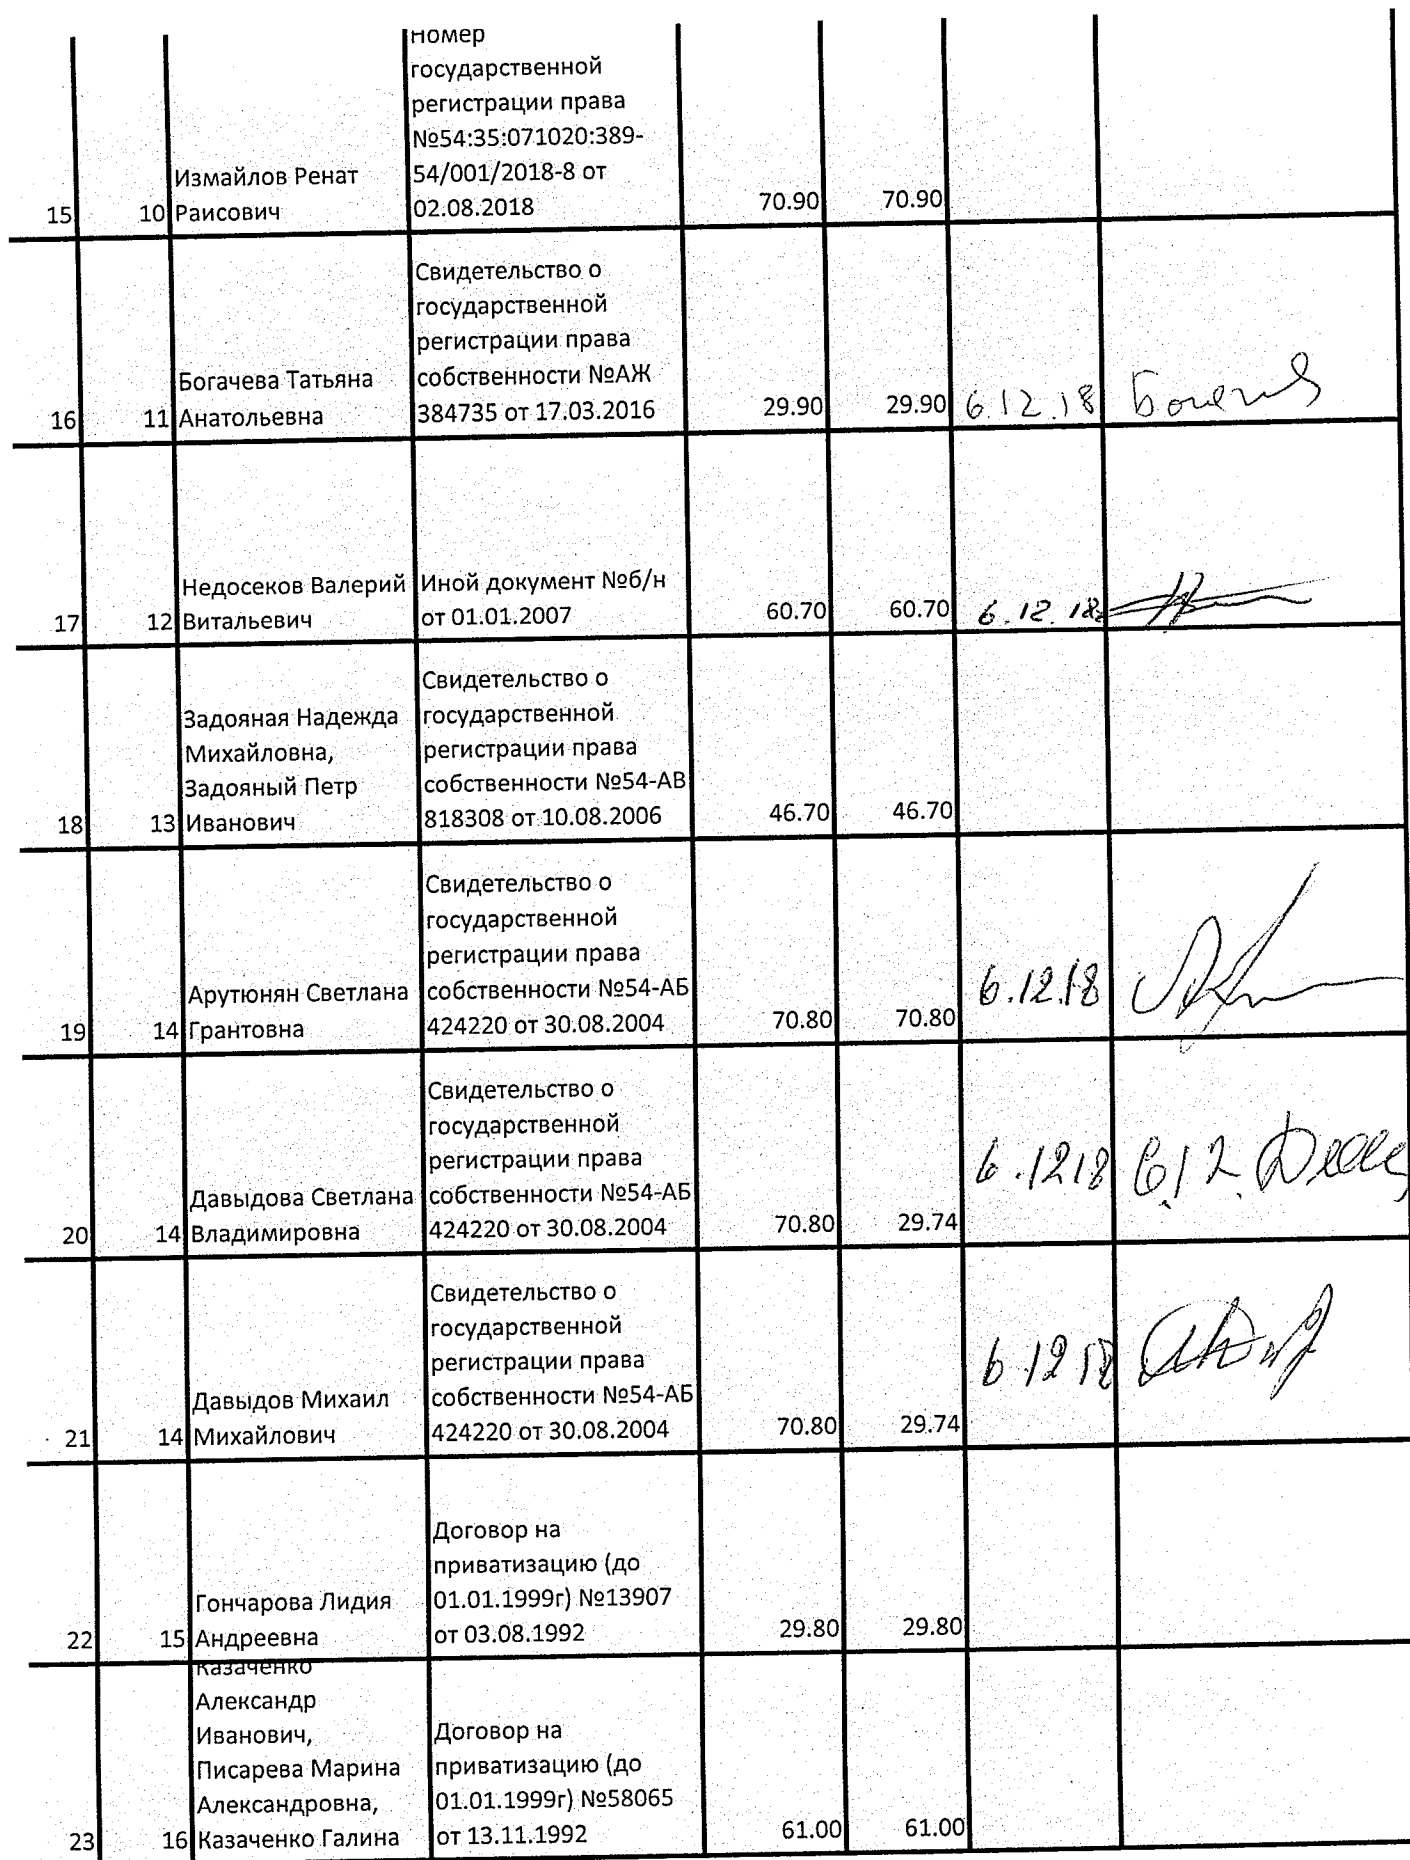 номер
государственной
регистрации права
№54:35:071020:389-
54/001/2018-8 от
02.08.2018
Измайлов Ренат
Раисович
15 10 70.90 70.90
Свидетельство о
государственной
регистрации права
собственности №АЖ
384735 от 17.03.2016
Богачева Татьяна
Анатольевна
16 11 29.90 29.90 6.12.18
Недосеков Валерий
Витальевич
Иной документ №б/н
от 01.01.2007
17 12 60.70 60.70 6.12.18
Задояная Надежда
Михайловна,
Задояный Петр
Иванович
Свидетельство о
государственной
регистрации права
собственности №54-АВ
818308 от 10.08.2006
18 13 46.70 46.70
Арутюнян Светлана
Грантовна
Свидетельство о
государственной
регистрации права
собственности №54-АБ
424220 от 30.08.2004
19 14 70.80 70.80 6.12.18
Давыдова Светлана
Владимировна
Свидетельство о
государственной
регистрации права
собственности №54-АБ
424220 от 30.08.2004
20 14 70.80 29.74 6.1218 6.12.
Давыдов Михаил
Михайлович
Свидетельство о
государственной
регистрации права
собственности №54-АБ
424220 от 30.08.2004
21 14 70.80 29.74 6 12 18
Гончарова Лидия
Андреевна
Договор на
приватизацию (до
01.01.1999г) №13907
от 03.08.1992
22 15 29.80 29.80
Казаченко
Александр
Иванович,
Писарева Марина
Александровна,
Казаченко Галина
Договор на
приватизацию (до
01.01.1999г) №58065
от 13.11.1992
23 16 61.00 61.00